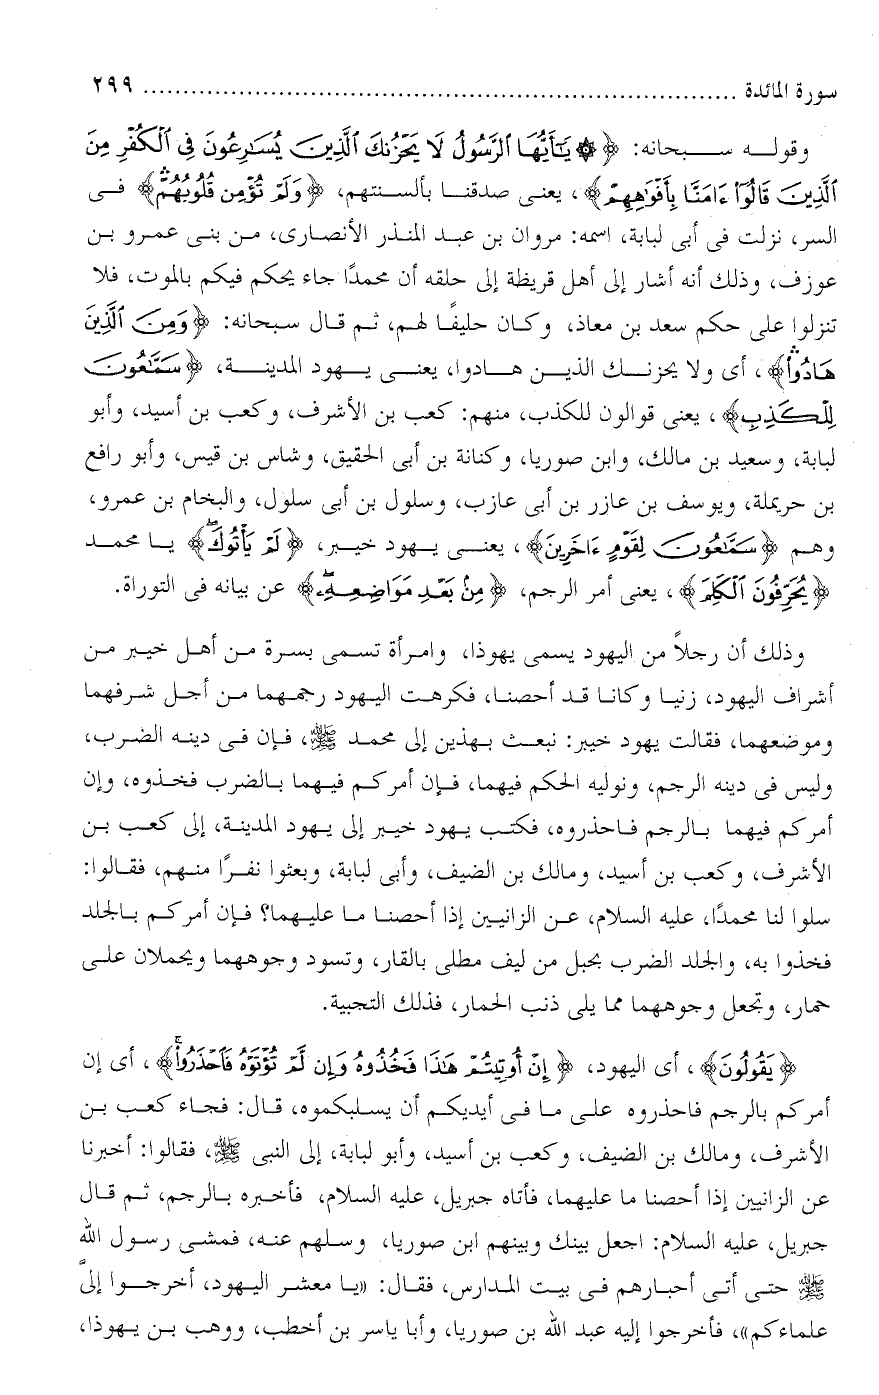 سورة المائدة ........................................................................ ٢٩٩
وقوله سبحانه: ﴿۞ يَٰٓأَيُّهَا ٱلرَّسُولُ لَا يَحْزُنكَ ٱلَّذِينَ يُسَٰرِعُونَ فِى ٱلْكُفْرِ مِنَ
ٱلَّذِينَ قَالُوٓا۟ ءَامَنَّا بِأَفْوَٰهِهِمْ﴾، يعنى صدقنا بألسنتهم، ﴿وَلَمْ تُؤْمِن قُلُوبُهُمْ ۛ﴾ فى
السر، نزلت فى أبى لبابة، اسمه: مروان بن عبد المنذر الأنصارى، من بنى عمرو بن
عوزف، وذلك أنه أشار إلى أهل قريظة إلى حلقه أن محمدًا جاء يحكم فيكم بالموت، فلا
تنزلوا على حكم سعد بن معاذ، وكان حليفًا لهم، ثم قال سبحانه: ﴿وَمِنَ ٱلَّذِينَ
هَادُوا۟ ۛ﴾، أى ولا يحزنك الذين هادوا، يعنى يهود المدينة، ﴿سَمَّٰعُونَ
لِلْكَذِبِ﴾، يعنى قوالون للكذب، منهم: كعب بن الأشرف، وكعب بن أسيد، وأبو
لبابة، وسعيد بن مالك، وابن صوريا، وكنانة بن أبى الحقيق، وشاس بن قيس، وأبو رافع
بن حريملة، ويوسف بن عازر بن أبى عازب، وسلول بن أبى سلول، والبخام بن عمرو،
وهم ﴿سَمَّٰعُونَ لِقَوْمٍ ءَاخَرِينَ﴾، يعنى يهود خيبر، ﴿لَمْ يَأْتُوكَ ۖ﴾ يا محمد
﴿يُحَرِّفُونَ ٱلْكَلِمَ﴾، يعنى أمر الرجم، ﴿مِنۢ بَعْدِ مَوَاضِعِهِۦ ۖ﴾ عن بيانه فى التوراة.
وذلك أن رجلاً من اليهود يسمى يهوذا، وامرأة تسمى بسرة من أهل خيبر من
أشراف اليهود، زنيا وكانا قد أحصنا، فكرهت اليهود رجمهما من أجل شرفهما
وموضعهما، فقالت يهود خيبر: نبعث بهذين إلى محمد ﷺ، فإن فى دينه الضرب،
وليس فى دينه الرجم، ونوليه الحكم فيهما، فإن أمركم فيهما بالضرب فخذوه، وإن
أمركم فيهما بالرجم فاحذروه، فكتب يهود خيبر إلى يهود المدينة، إلى كعب بن
الأشرف، وكعب بن أسيد، ومالك بن الضيف، وأبى لبابة، وبعثوا نفرًا منهم، فقالوا:
سلوا لنا محمدًا، عليه السلام، عن الزانيين إذا أحصنا ما عليهما؟ فإن أمركم بالجلد
فخذوا به، والجلد الضرب بحبل من ليف مطلى بالقار، وتسود وجوههما ويحملان على
حمار، وتجعل وجوههما مما يلى ذنب الحمار، فذلك التجبية.
﴿يَقُولُونَ﴾، أى اليهود، ﴿إِنْ أُوتِيتُمْ هَٰذَا فَخُذُوهُ وَإِن لَّمْ تُؤْتَوْهُ فَٱحْذَرُوا۟ ۚ﴾، أى إن
أمركم بالرجم فاحذروه على ما فى أيديكم أن يسلبكموه، قال: فجاء كعب بن
الأشرف، ومالك بن الضيف، وكعب بن أسيد، وأبو لبابة، إلى النبى ﷺ، فقالوا: أخبرنا
عن الزانيين إذا أحصنا ما عليهما، فأتاه جبريل، عليه السلام، فأخبره بالرجم، ثم قال
جبريل، عليه السلام: اجعل بينك وبينهم ابن صوريا، وسلهم عنه، فمشى رسول الله
ﷺ حتى أتى أحبارهم فى بيت المدارس، فقال: «يا معشر اليهود، أخرجوا إلىَّ
علماءكم»، فأخرجوا إليه عبد الله بن صوريا، وأبا ياسر بن أخطب، ووهب بن يهوذا،